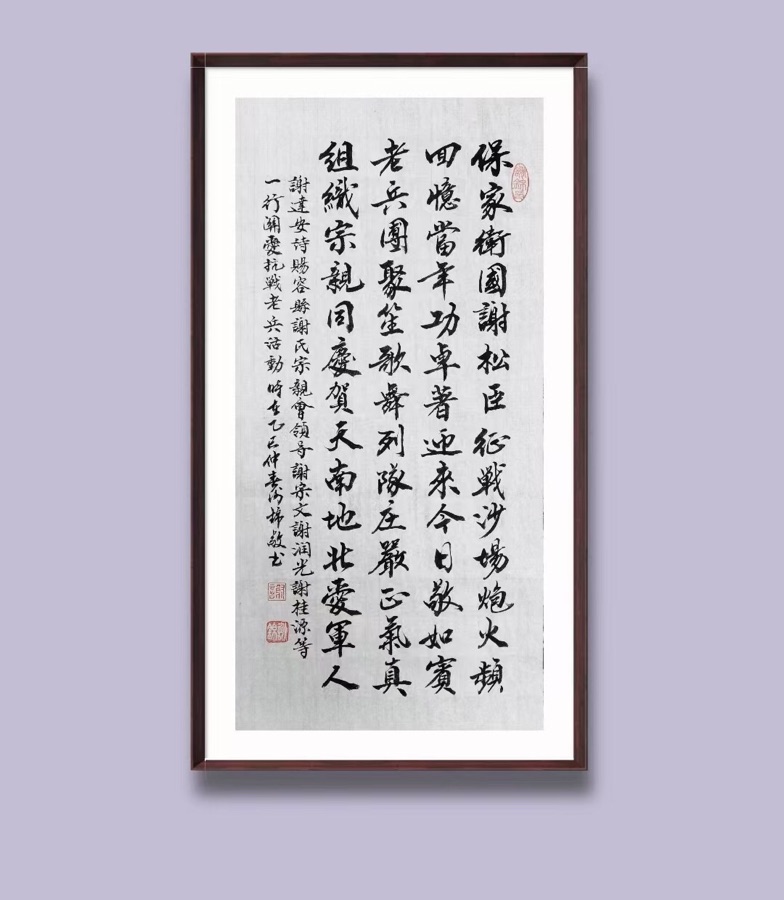 保家衛國謝松臣征戰沙場炮火頻
回憶當年功卓著迎來今日敬如賓
老兵團聚笙歌舞列隊庄嚴正氣真
組織宗親同慶賀天南地北愛軍人
謝達安诗賜容縣謝氏宗親會領导謝宗文謝润光謝桂源等
一行關愛抗戰老兵活動時在乙巳仲春
敬书